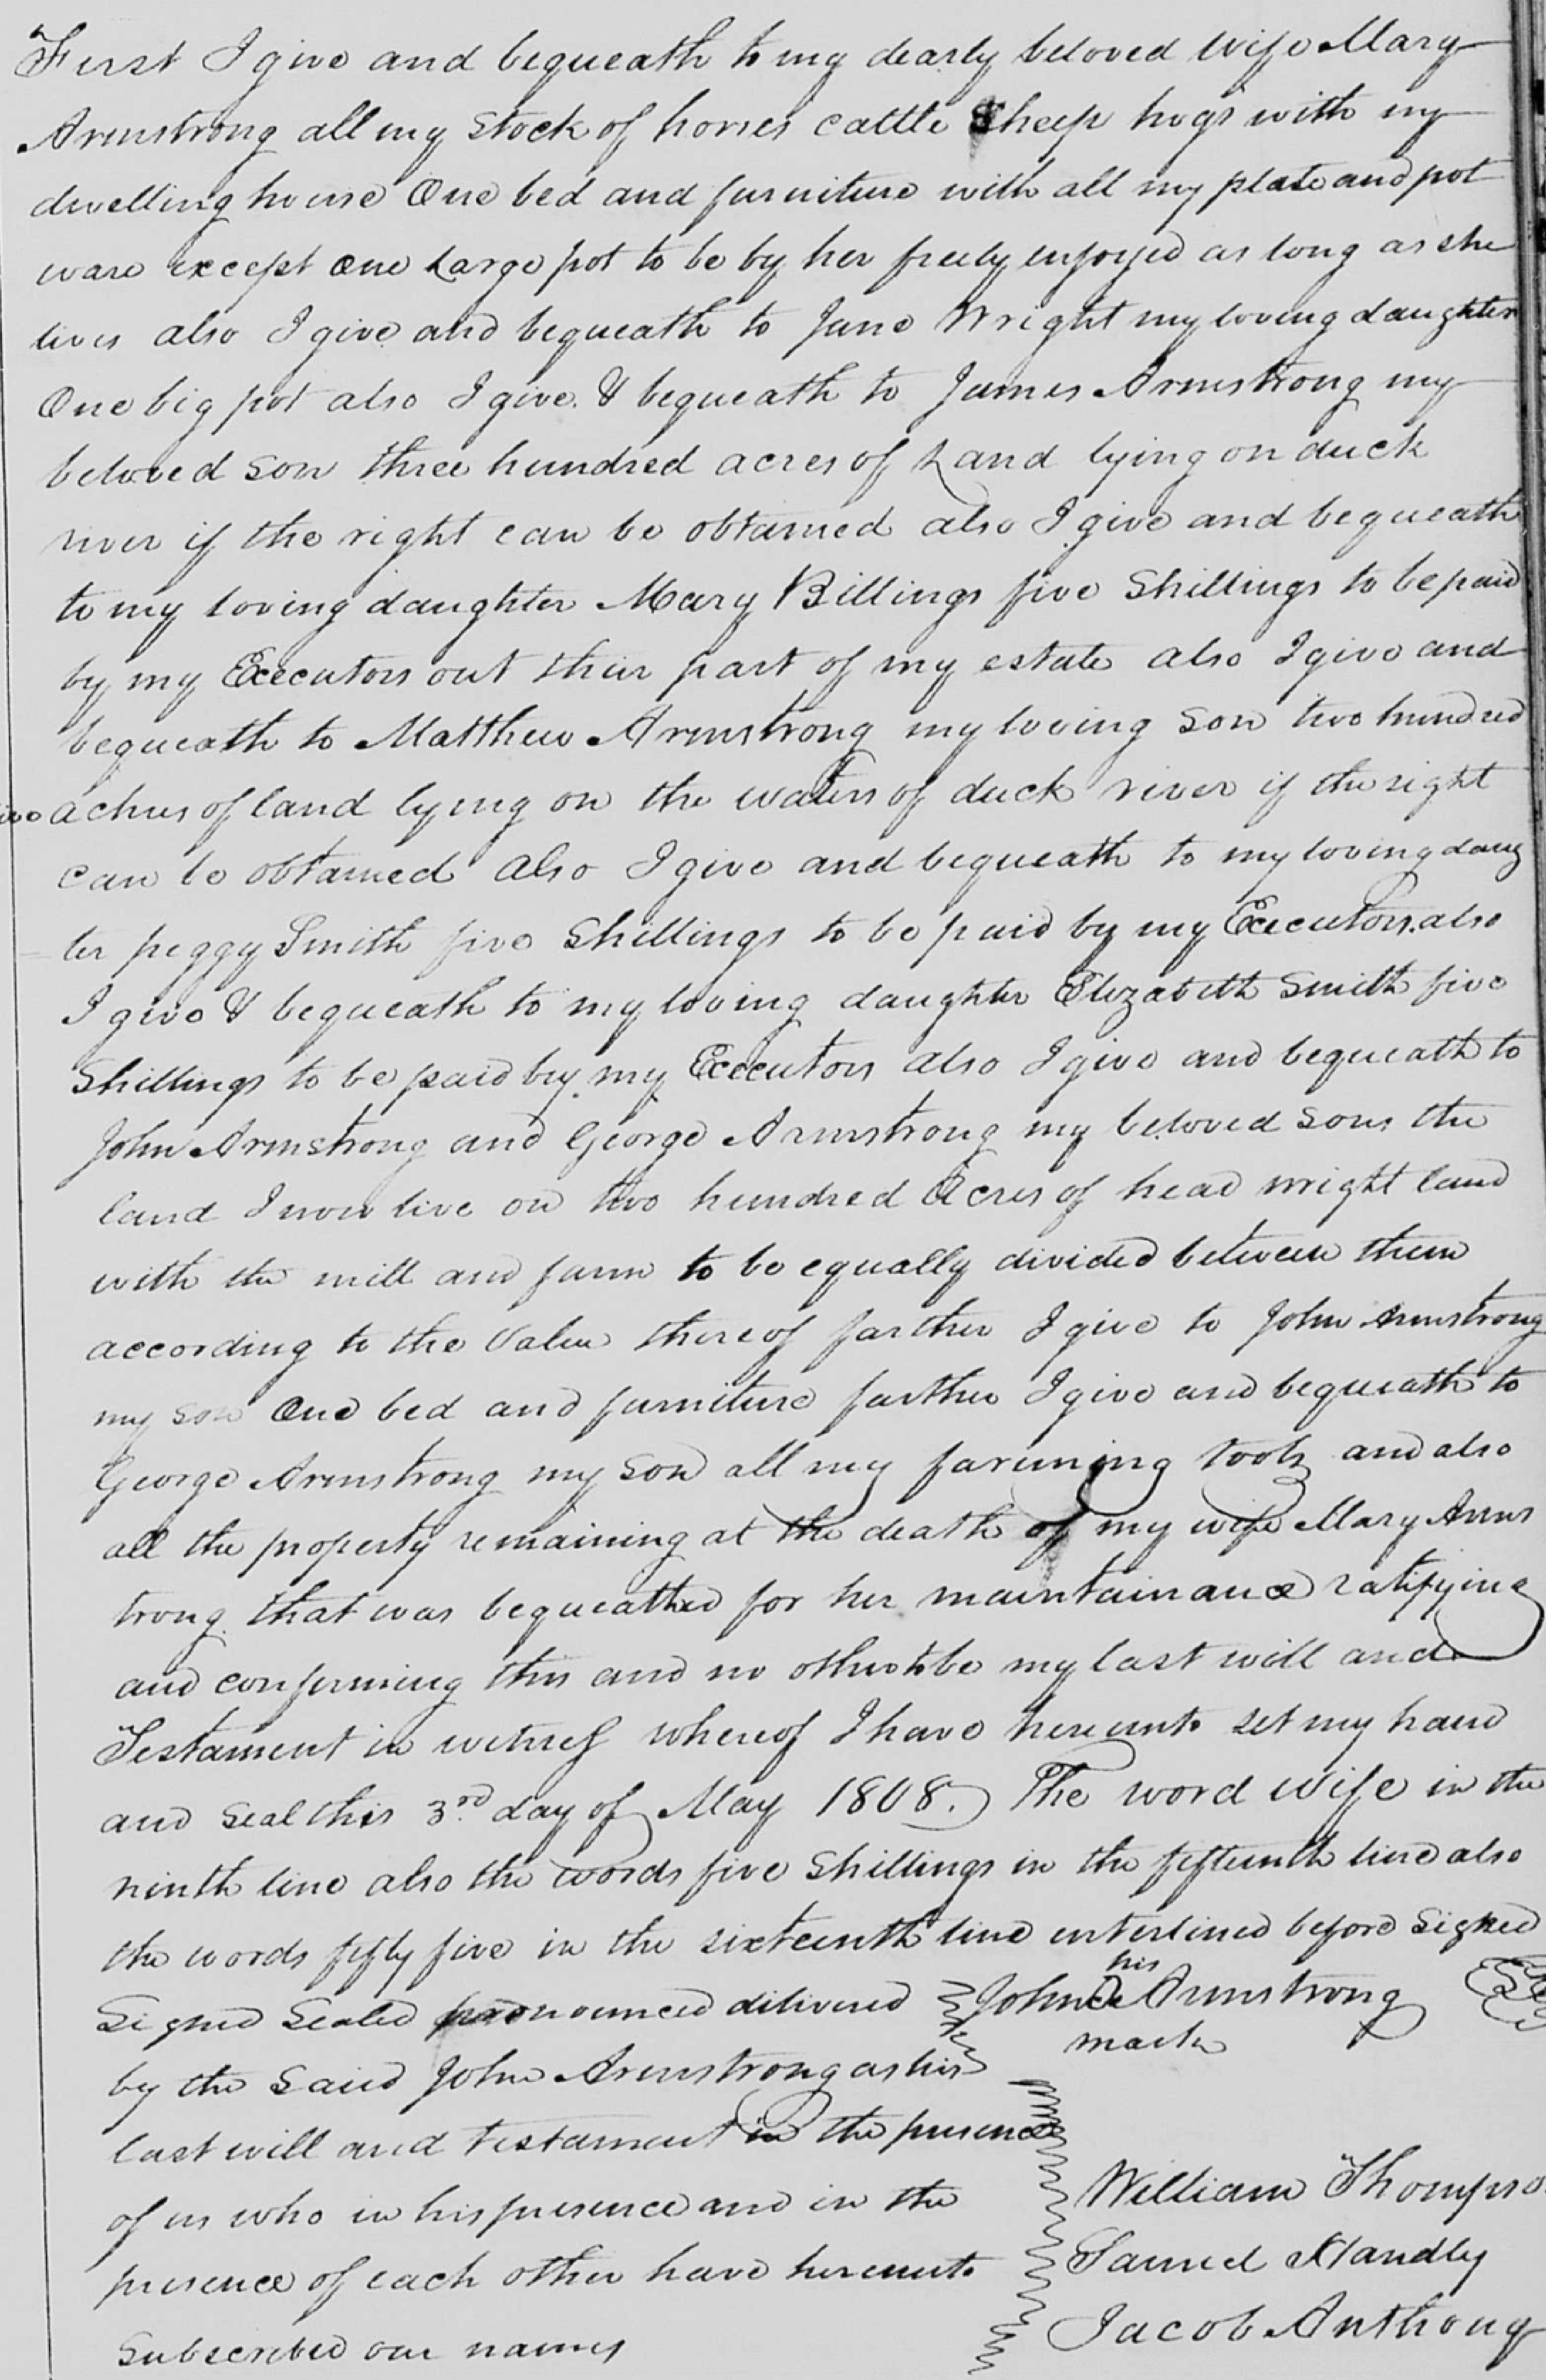 First I give and bequeath to my dearly beloved wife Mary
Armstrong all my stock of horses cattle Sheep hogs with my
dwelling house One bed and furniture with all my plate and pot
ware except one Large pot to be by her freely enjoyed as long as she
lives also I give and bequeath to Jane Wright my loving daughter
One big pot also I give & bequeath to James Armstrong my
beloved son three hundred acres of Land lying on duck
river if the right can be obtained also I give and bequeath
to my loving daughter Mary Billings five Shillings to be paid
by my Executors out their part of my estate also I give and
bequeath to Matthew Armstrong my loving son two hundred
achres of land lying on the waters of duck river if the right
can be obtained also I give and bequeath to my loving daug
ter peggy Smith five Shillings to be paid by my Executors also
I give & bequeath to my loving daughter Elizabeth Smith five
Shillings to be paid by my Executors also I give and bequeath to
John Armstrong and George Armstrong my beloved sons the
land I now live on two hundred Acres of head wright land
with the mill and farm to be equally divided between them
according to the Value thereof farther I give to John Armstrong
my son One bed and furniture farther I give and bequeath to
George Armstrong my son all my farming tools and also
all the property remaining at the death of my wife Mary Arms
trong that was bequeathed for her maintainance ratifying
and confirming this and no other to be my last will and
Testament in witness whereof I have hereunto set my hand
and seal this 3rd. day of May 1808. The word wife in the
ninth line also the words five Shillings in the fifteenth line also
the words fifty five in the sixteenth line enterlined before signed
Signed Sealed pronounced delivered
by the said John Armstrong as his
last will and testament in the presence
of us who in his presence and in the
presence of each other have hereunto
subscribed our names
his
John Armstrong
mark
William Thompso
Samuel Handly
Jacob Anthony